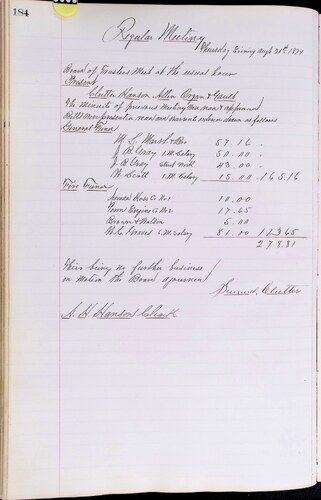 184
Regular Meeting
Thursday Evening Augt 20th 1874
Board of Trustees Meet at the usual hour
Present
Clutter Hanson Allen Organ &
The minuets of previous Meeting was read & approved
Bills were presented read and warrants ordered drawn as follows
General Fund
M. L. Marsh & Bro 57.16 "
J. B. Gray 1 M Salary 50.00 "
J. B. Gray 43.00 "
N. Scott 1 M Salary 15.00 165.16
Fire Fund
Hose Co No 1 10.00
Engine Co No 2 17.65
Brown & 5.00
N. C. Groves 1 M Salary 81.00 113.65
278.81
There being no further business
on motion the Board ajourned
Clutter
A. H. Hanson Clerk